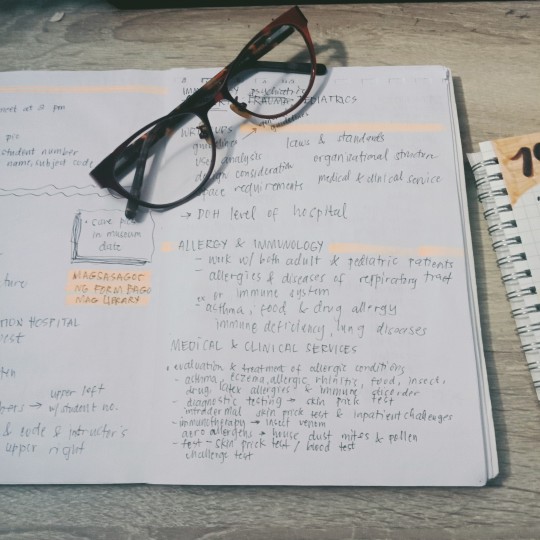 meet at 2 pm
pic
student number
name, subject code
• save pic
in museum
date
MAGSASAGOT
NG FORM BAGO
MAG LIBRARY
HOSPITAL
upper left
→ w/ student no.
& code & instructor's
upper right
psychiatrics
TRAUMA PEDIATRICS
laws & standards
user analysis
organizational structure
design consideration
space requirements
medical & clinical service
→ DOH level of hospital
ALLERGY & IMMUNOLOGY
- work w/ both adult & pediatric patients
- allergies & diseases of respiratory tract
or immune system
ex.
- asthma, food & drug allergy
immune deficiency, lung diseases
MEDICAL & CLINICAL SERVICES
• evaluation & treatment of allergic conditions
- asthma, eczema, allergic rhinitis, food, insect,
drug, latex allergies & immune disorder
- diagnostic testing → skin prick test
intradermal skin prick test & inpatient challenges
- immunotherapy → insect venom
aero allergens → house dust mites & pollen
- test - skin prick test / blood test
challenge test